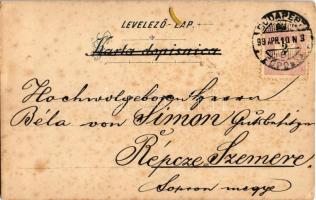 LEVELEZŐ-LAP.
Karta dopisnica
BUDAPEST
99 APR. 10 N 3
Hochwolgeborn Herrn
Béla von Simon Gutsbesitzer
Répcze Szemere.
Sopron megye